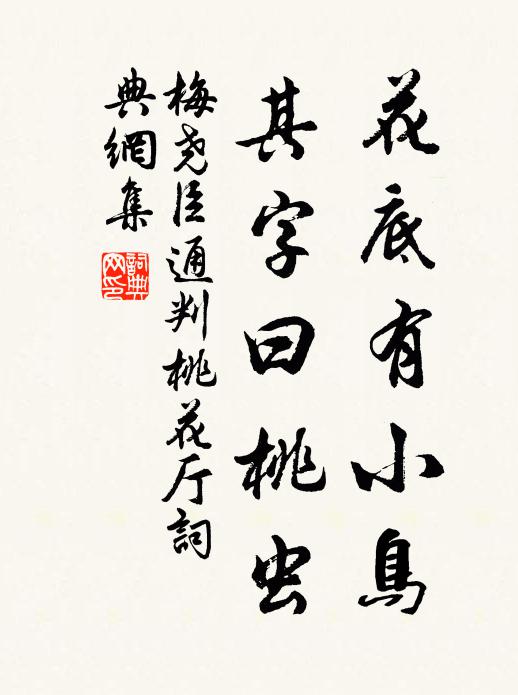 花底有小鳥
其字曰桃虫
梅尧臣通判桃花厅詞
典網集
詞典
网印